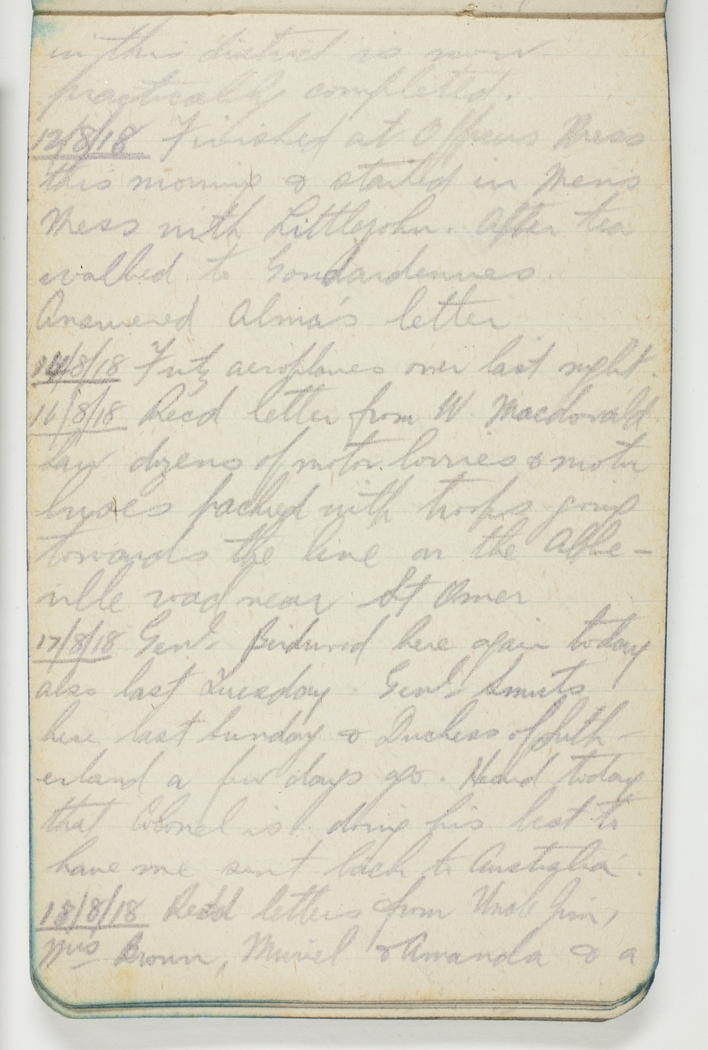 in this district is now
practically completed.
12/8/18 Finished at Officers Mess
this morning & started in Mens
Mess with Littlejohn. After tea
walked to Gondardennes.
Answered Alma's letter
14/8/18 Fritz aeroplanes over last night.
16/8/18 Recd letter from W. Macdonald
Saw dozens of motor lorries & motor
buses packed with troops going
towards the line on the Abbe-
ville road near St Omer
17/8/18 Genl. Birdwood here again today
also last Tuesday. Genl. Smuts
here last Sunday & Duchess of Suth-
erland a few days ago. Heard today
that Colonel is doing his best to
have me sent back to Australia.
18/8/18 Recd letters from Uncle Jim,
Mrs Brown, Muriel & Amanda & a